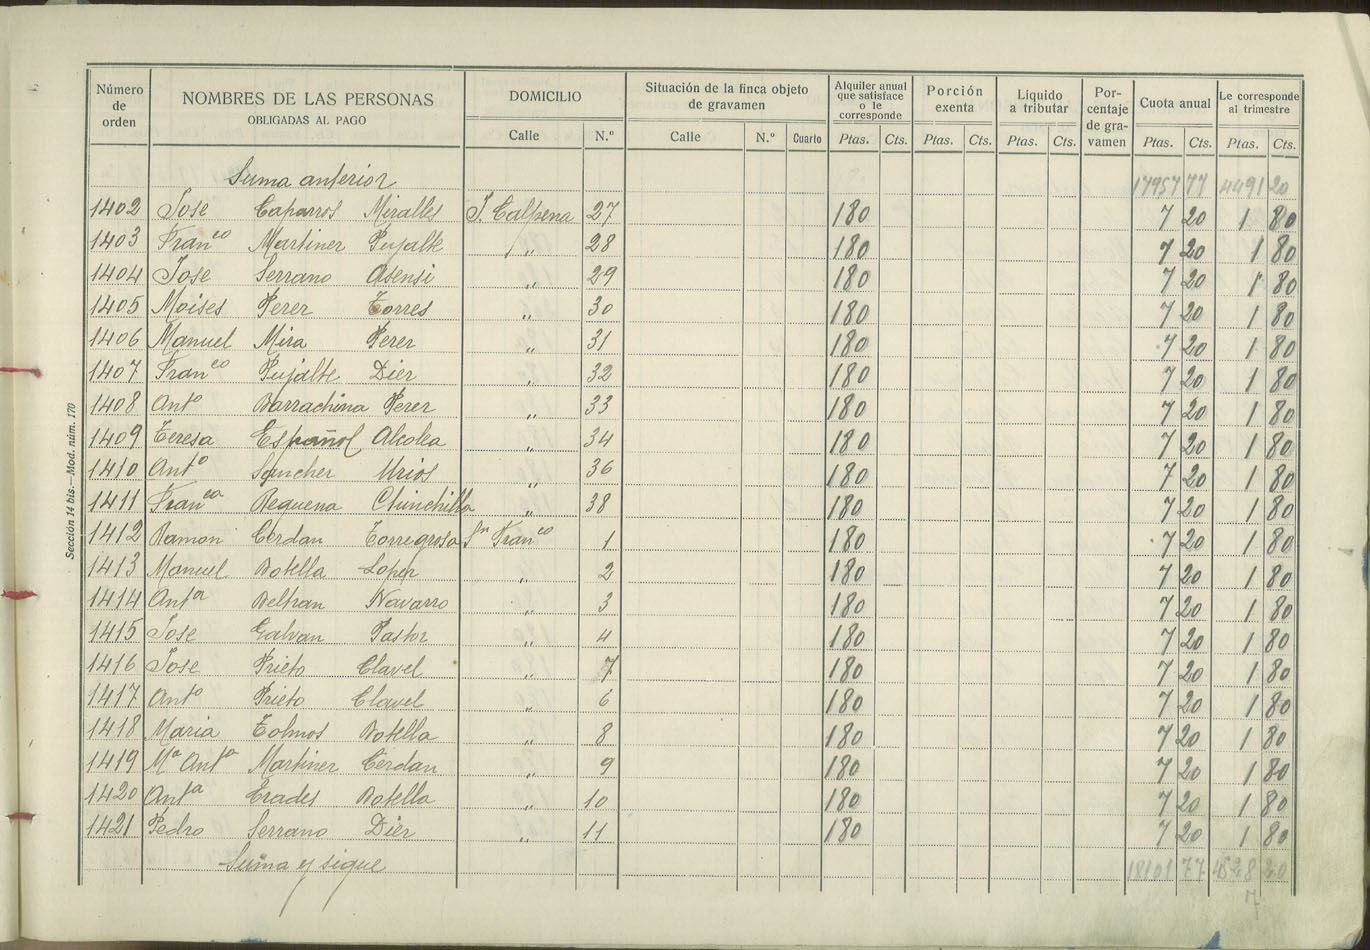 Número de orden NOMBRES DE LAS PERSONAS OBLIGADAS AL PAGO DOMICILIO Situación de la finca objeto de gravamen Alquiler anual que satisface o le corresponde Porción exenta Líquido a tributar Por-centaje de gra-vamen Cuota anual Le corresponde al trimestre
Calle N.º Calle N.º Cuarto Ptas. Cts. Ptas. Cts. Ptas. Cts. Ptas. Cts. Ptas. Cts.
Suma anterior 17957 77 4491 20
1402 Jose Caparros Miralles J. Calpena 27 180 7 20 1 80
1403 Franco Martinez Pujalte „ 28 180 7 20 1 80
1404 Jose Serrano Asensi „ 29 180 7 20 1 80
1405 Moises Perez Torres „ 30 180 7 20 1 80
1406 Manuel Mira Perez „ 31 180 7 20 1 80
1407 Franco Pujalte Diez „ 32 180 7 20 1 80
1408 Anto Barrachina Perez „ 33 180 7 20 1 80
1409 Teresa Español Alcolea „ 34 180 7 20 1 80
1410 Anto Sanchez Urios „ 36 180 7 20 1 80
1411 Franca Requena Chinchilla „ 38 180 7 20 1 80
1412 Ramon Cerdan Torregrosa Sn Franco 1 180 7 20 1 80
1413 Manuel Botella Lopez „ 2 180 7 20 1 80
1414 Anta Beltran Navarro „ 3 180 7 20 1 80
1415 Jose Galvan Pastor „ 4 180 7 20 1 80
1416 Jose Prieto Clavel „ 7 180 7 20 1 80
1417 Anto Prieto Clavel „ 6 180 7 20 1 80
1418 Maria Tolmos Botella „ 8 180 7 20 1 80
1419 Ma Anta Martinez Cerdan „ 9 180 7 20 1 80
1420 Anta Erades Botella „ 10 180 7 20 1 80
1421 Pedro Serrano Diez „ 11 180 7 20 1 80
Suma y sigue 18101 77 20
7
Sección 14 bis.—Mod. núm. 170